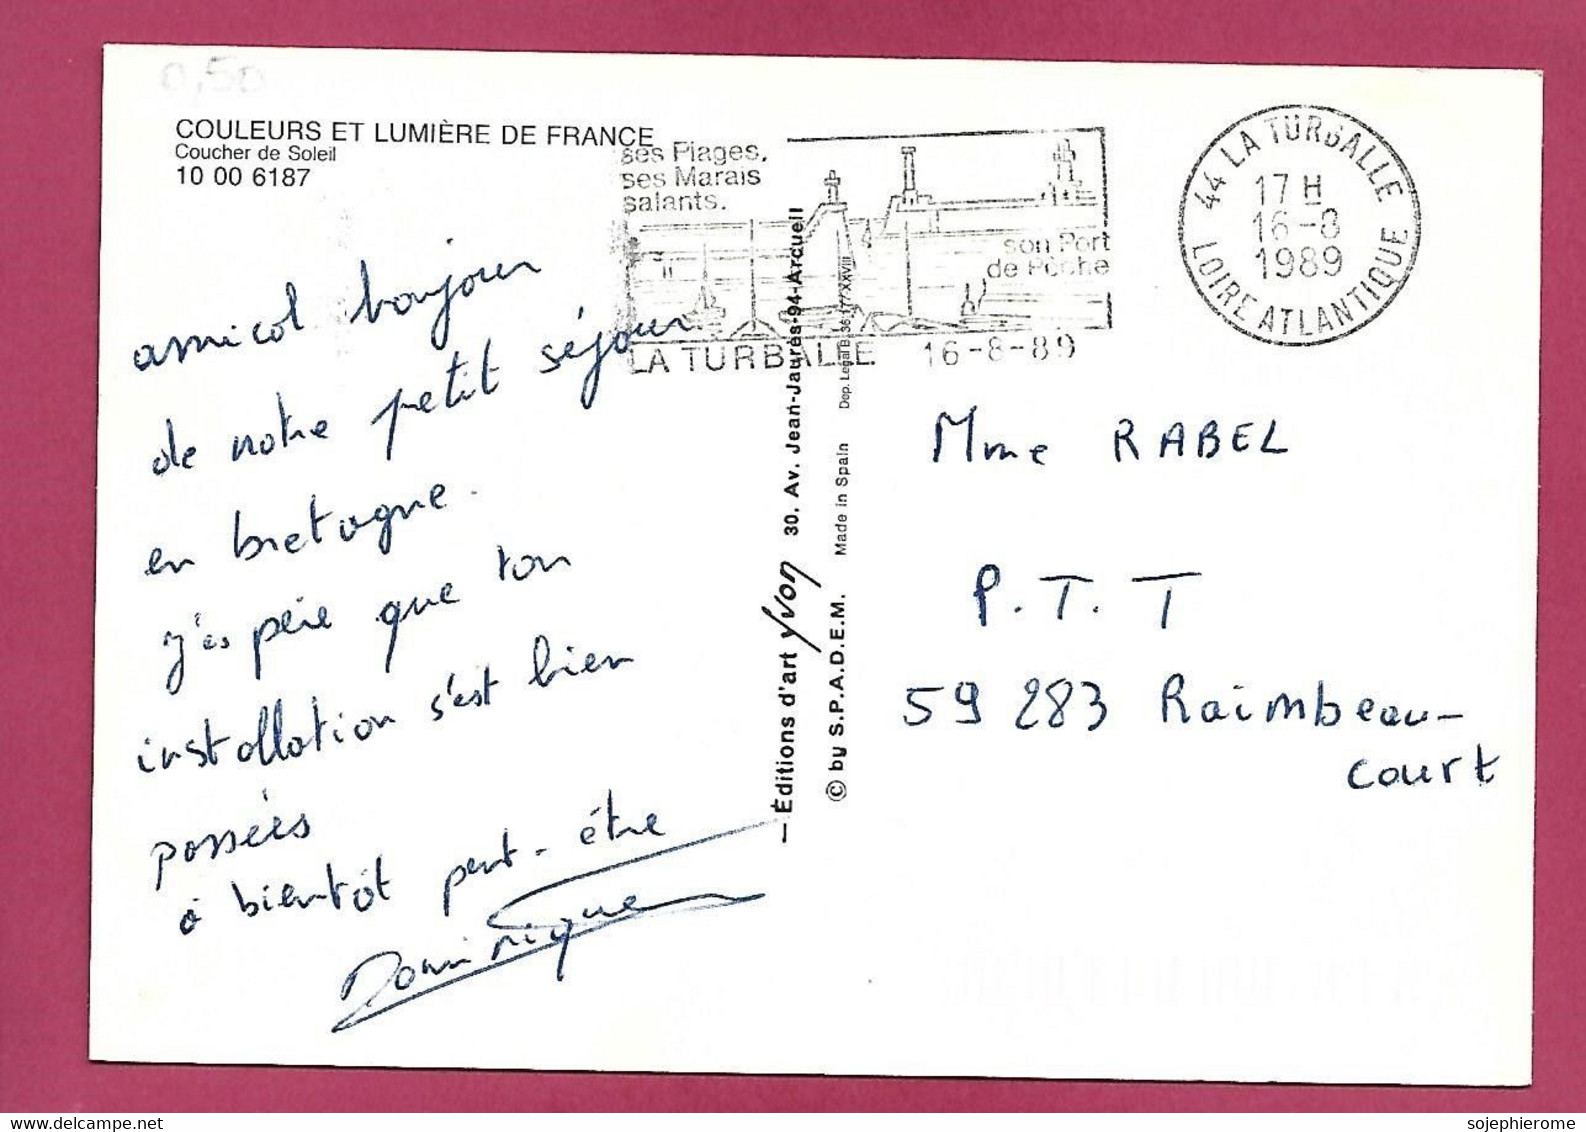 0,50
COULEURS ET LUMIÈRE DE FRANCE
Coucher de Soleil
10 00 6187
ses Plages,
ses Marais
salants.
son Port
de Pêche
LA TURBALLE 16-8-89
44 LA TURBALLE
17 H
16-8
1989
LOIRE ATLANTIQUE
amical bonjour
de notre petit séjour
en bretagne.
j'espère que ton
installation s'est bien
passées
à bientôt peut-être
Dominique
— Éditions d'art Yvon 30, Av. Jean-Jaurès-94-Arcueil
© by S.P.A.D.E.M. Made in Spain Dep. Legal B. 36.177-XXVIII
Mme RABEL
P.T.T
59 283 Raimbeau-
court
sojephierome